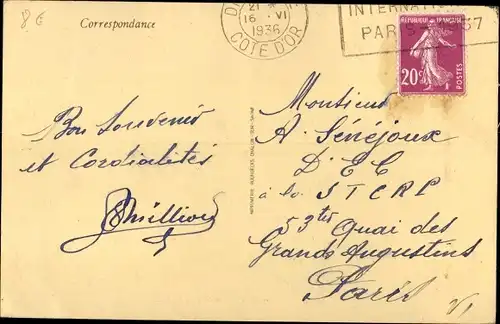 8 €
Correspondance
21
16 VI
1936
COTE D'OR
INTERNAT
PARIS 1937
RÉPUBLIQUE FRANÇAISE
20c
POSTES
Bon Souvenir
et Cordialités
Monsieur
A. Sénéjoux
D'EC
à la STCRP
53ter Quai des
Grands Augustins
Paris